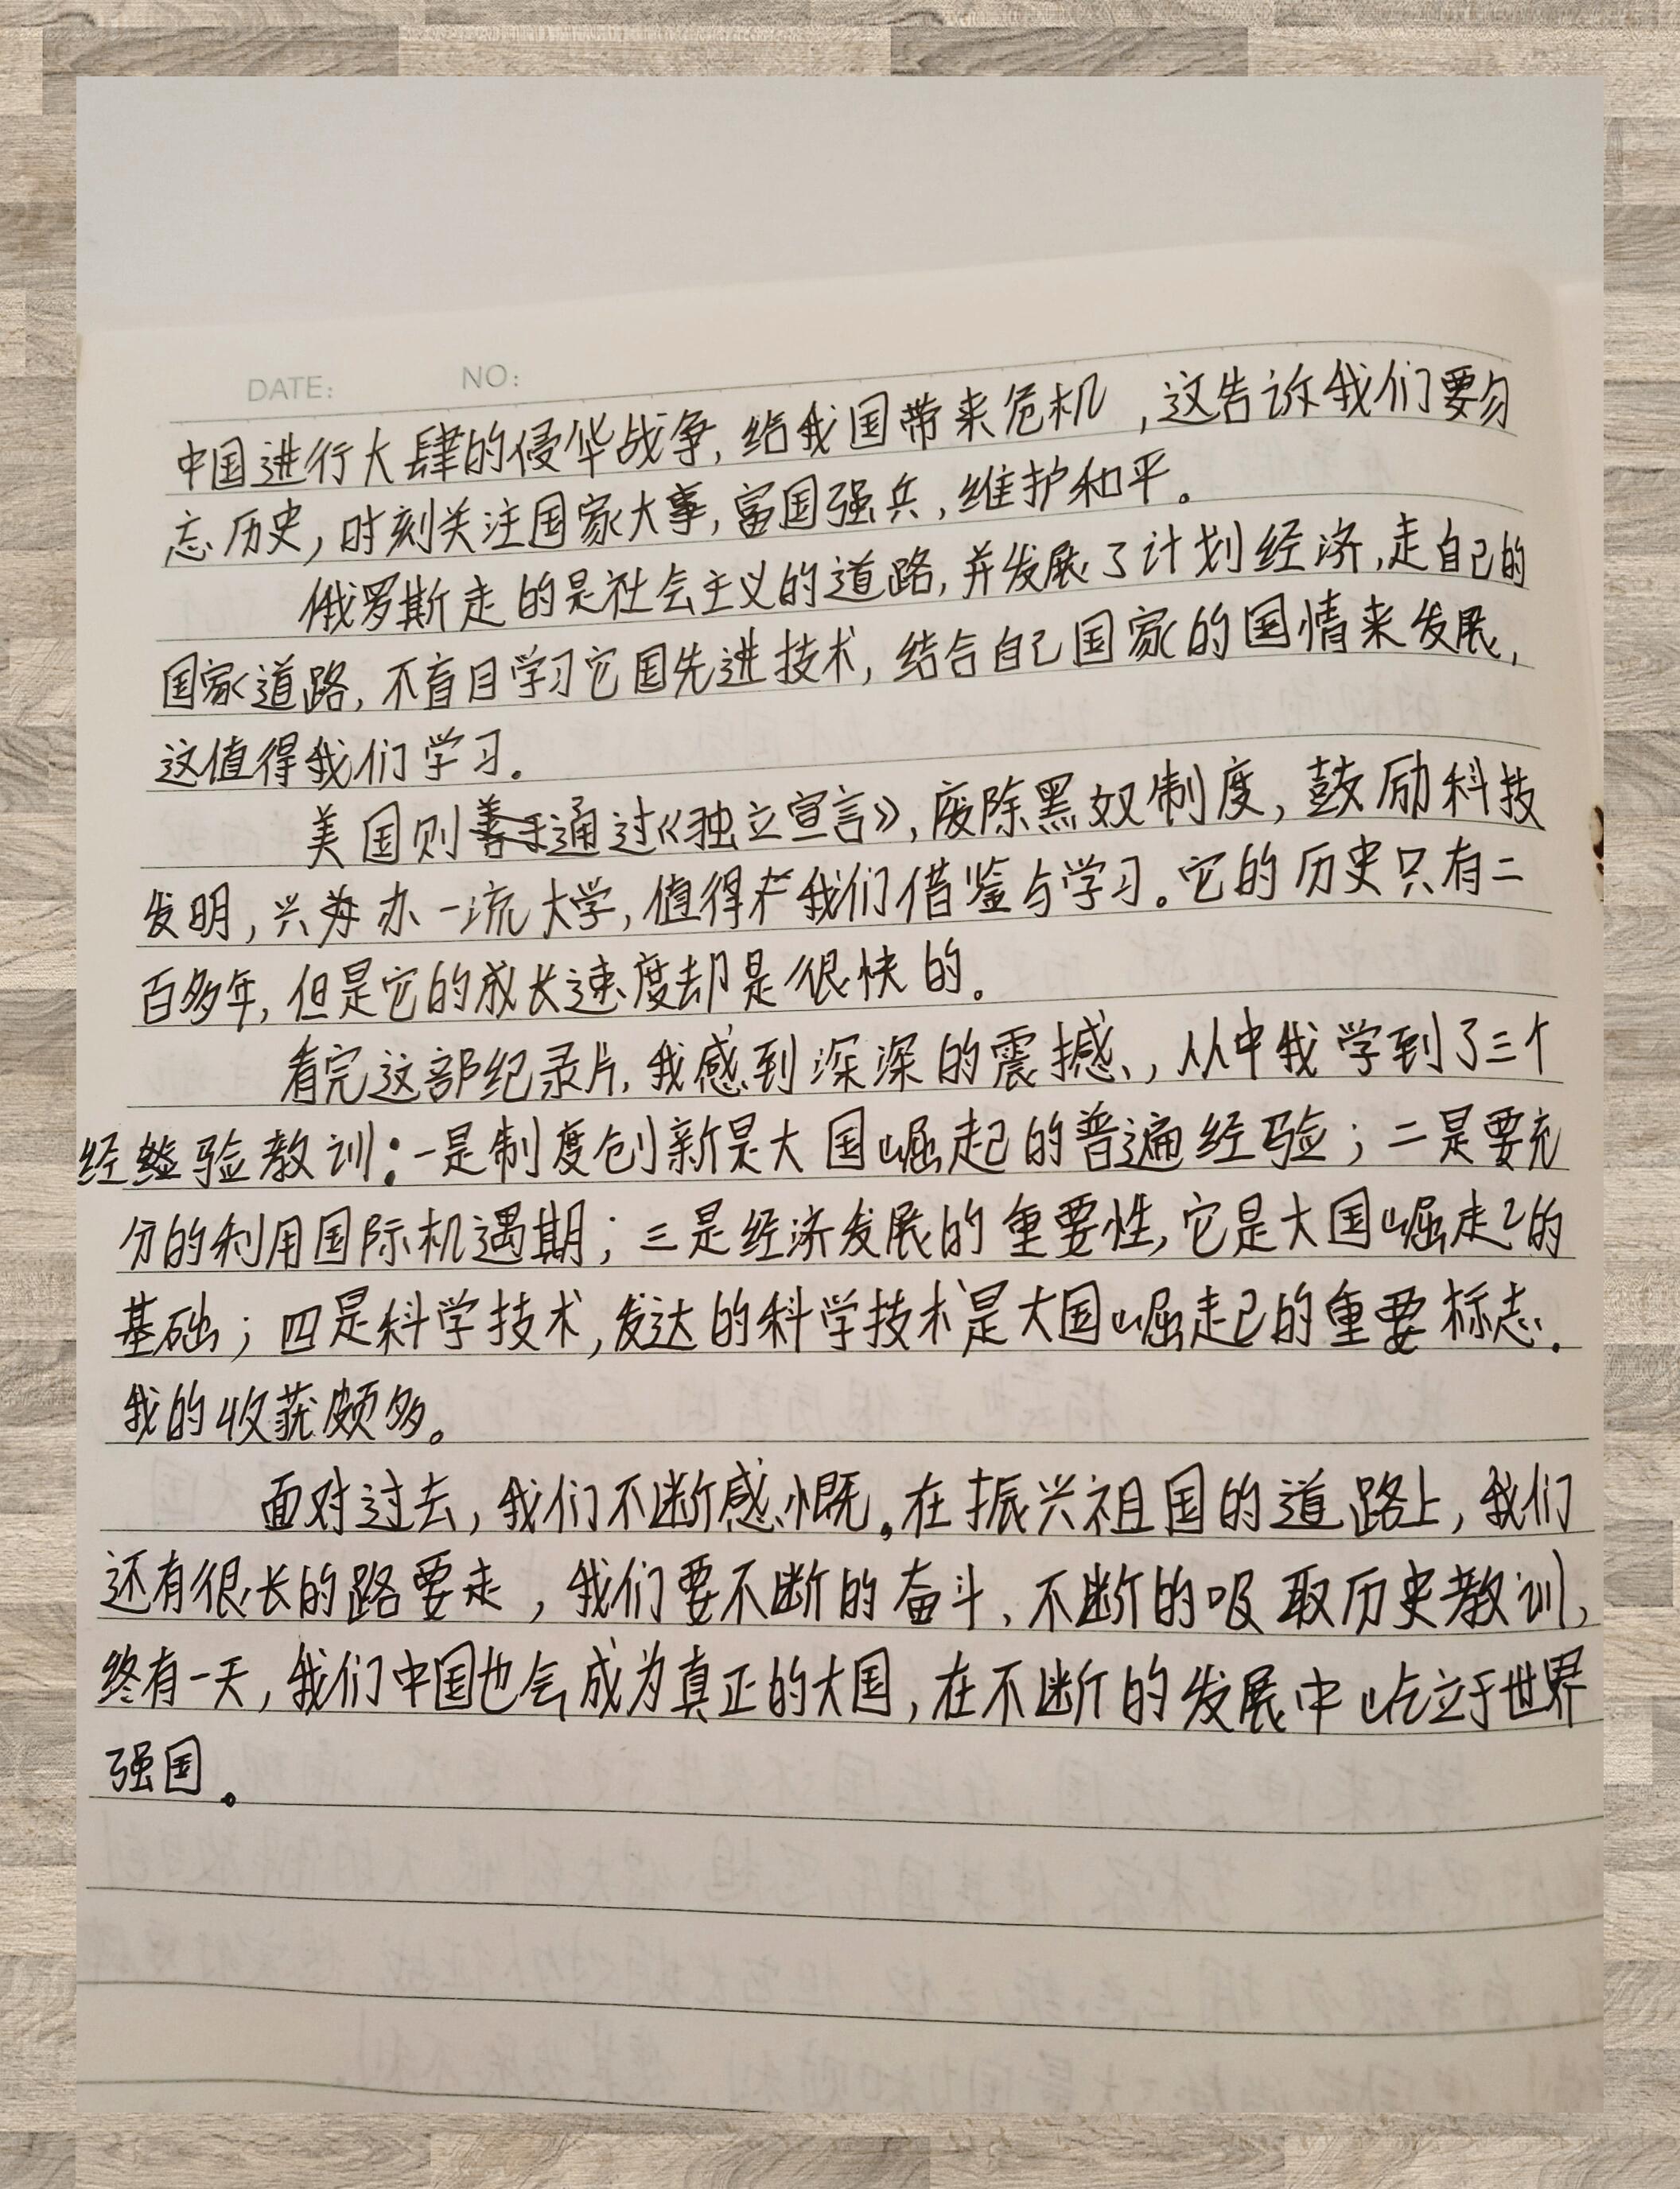 DATE: NO:
中国进行大肆的侵华战争,给我国带来危机,这告诉我们要勿
忘历史,时刻关注国家大事,富国强兵,维护和平。
俄罗斯走的是社会主义的道路,并发展了计划经济,走自己的
国家道路,不盲目学习它国先进技术,结合自己国家的国情来发展,
这值得我们学习.
美国则通过《独立宣言》,废除黑奴制度,鼓励科技
发明,兴办一流大学,值得我们借鉴与学习。它的历史只有二
百多年,但是它的成长速度却是很快的。
看完这部纪录片,我感到深深的震撼,从中我学到了三个
经验教训:一是制度创新是大国崛起的普遍经验;二是要充
分的利用国际机遇期;三是经济发展的重要性,它是大国崛起的
基础;四是科学技术,发达的科学技术是大国崛起的重要标志.
我的收获颇多。
面对过去,我们不断感慨。在振兴祖国的道路上,我们
还有很长的路要走,我们要不断的奋斗、不断的吸取历史教训,
终有一天,我们中国也会成为真正的大国,在不断的发展中屹立于世界
强国。